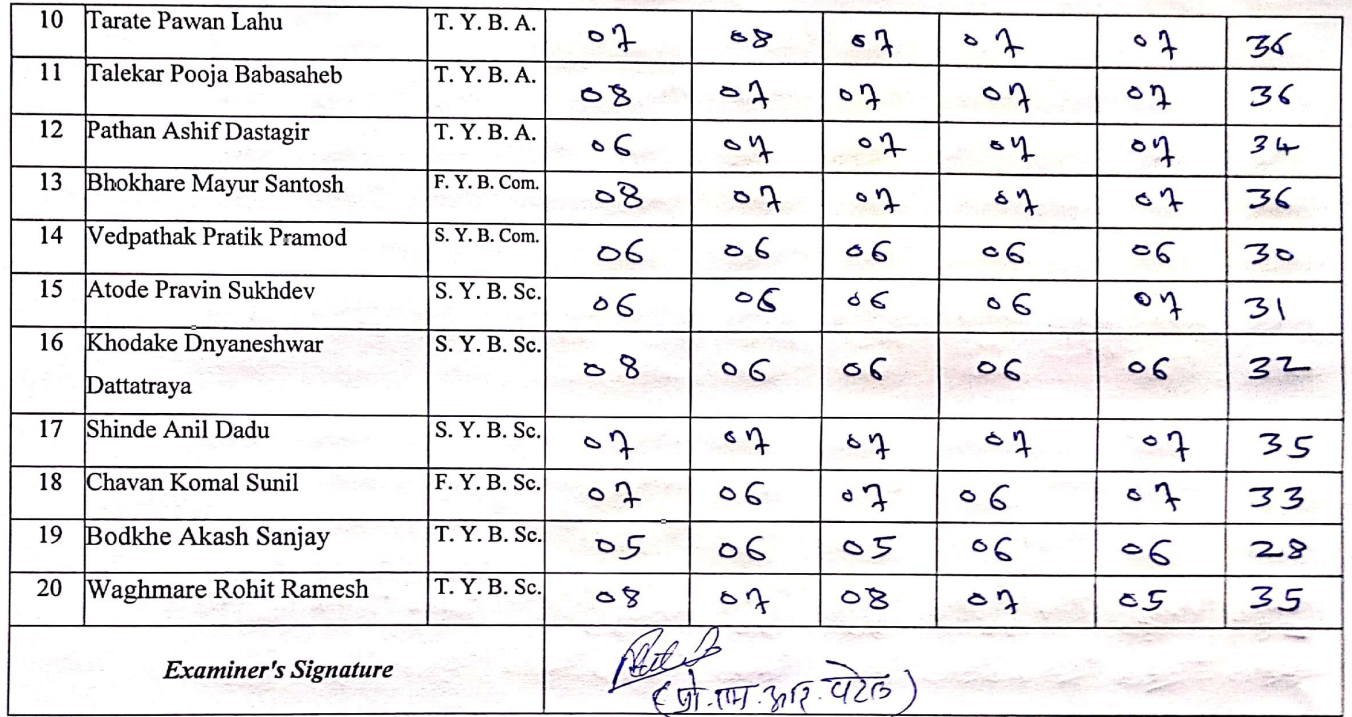 10 Tarate Pawan Lahu T. Y. B. A. 07 08 07 07 07 36
11 Talekar Pooja Babasaheb T. Y. B. A. 08 07 07 07 07 36
12 Pathan Ashif Dastagir T. Y. B. A. 06 07 07 07 07 34
13 Bhokhare Mayur Santosh F. Y. B. Com. 08 07 07 07 07 36
14 Vedpathak Pratik Pramod S. Y. B. Com. 06 06 06 06 06 30
15 Atode Pravin Sukhdev S. Y. B. Sc. 06 06 06 06 07 31
16 Khodake Dnyaneshwar S. Y. B. Sc. 08 06 06 06 06 32
Dattatraya
17 Shinde Anil Dadu S. Y. B. Sc. 07 07 07 07 07 35
18 Chavan Komal Sunil F. Y. B. Sc. 07 06 07 06 07 33
19 Bodkhe Akash Sanjay T. Y. B. Sc. 05 06 05 06 06 28
20 Waghmare Rohit Ramesh T. Y. B. Sc. 08 07 08 07 05 35
Examiner's Signature
(प्रो. एम. आर. पटेल)